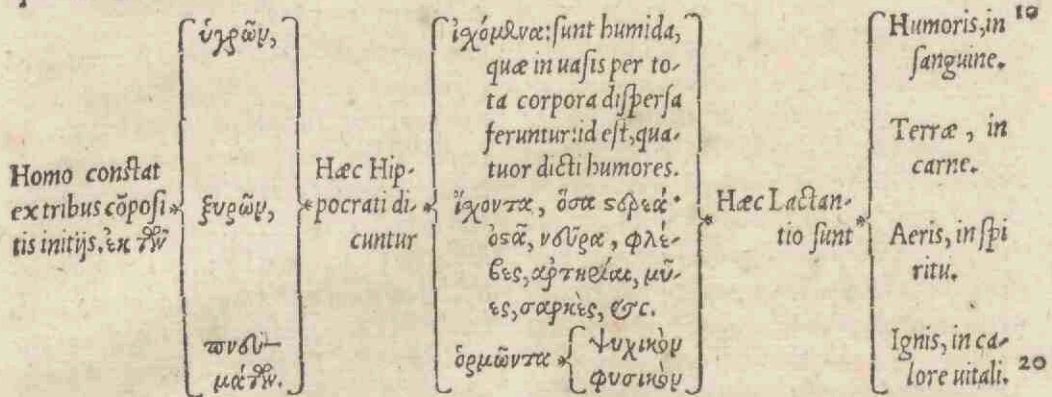 Homo constat
ex tribus cõposi
tis initijs. ἐκ τῶν
ὑγρῶν,
ξυρῶν,
πνευ-
μάτων.
Hæc Hip-
pocrati di-
cuntur
ἰχόμενα: sunt humida,
quæ in uasis per to-
ta corpora dispersa
feruntur: id est, qua-
tuor dicti humores.
ἴχοντα, ὅσα στερεά·
ὀσᾶ, νεῦρα, φλέ-
βες, ἀρτηρίαι, μῦ-
ες, σαρκὲς, &c.
ὁρμῶντα
ψυχικὸν
φυσικὸν
Hæc Lactan-
tio sunt
Humoris, in 10
sanguine.
Terræ, in
carne.
Aeris, in spi
ritu.
Ignis, in ca-
lore uitali. 20